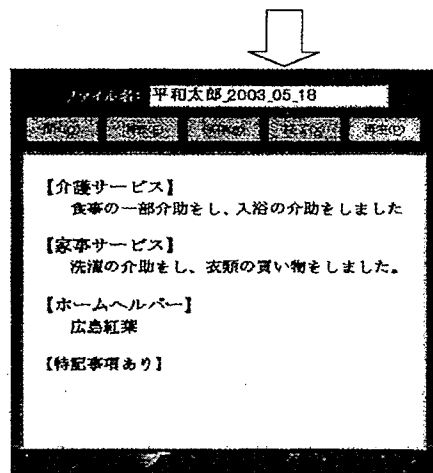 ファイル名: 平和太郎_2003_05_18
【介護サービス】
食事の一部介助をし、入浴の介助をしました
【家事サービス】
洗濯の介助をし、衣類の買い物をしました。
【ホームヘルパー】
広島紅葉
【特記事項あり】